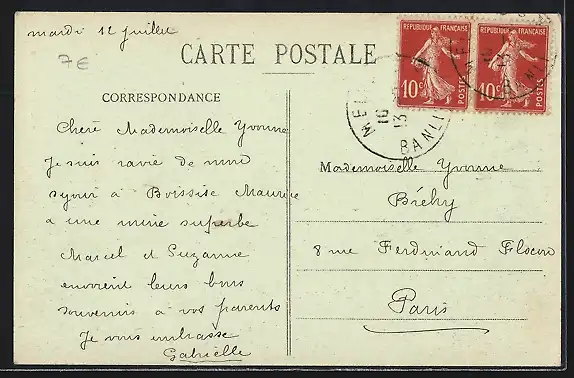 mardi 12 juillet
7€
CARTE POSTALE
REPUBLIQUE FRANÇAISE
10c POSTES
REPUBLIQUE FRANÇAISE
10c POSTES
BANLI
13
CORRESPONDANCE
Chère Mademoiselle Yvonne
Je suis ravie de mon
séjour à Boissise Maurice
a une mine superbe
Marcel et Suzanne
envoient leurs bons
souvenirs à vos parents
Je vous embrasse
Gabrielle
Mademoiselle Yvonne
Bréhy
8 rue Ferdinand Flocon
Paris